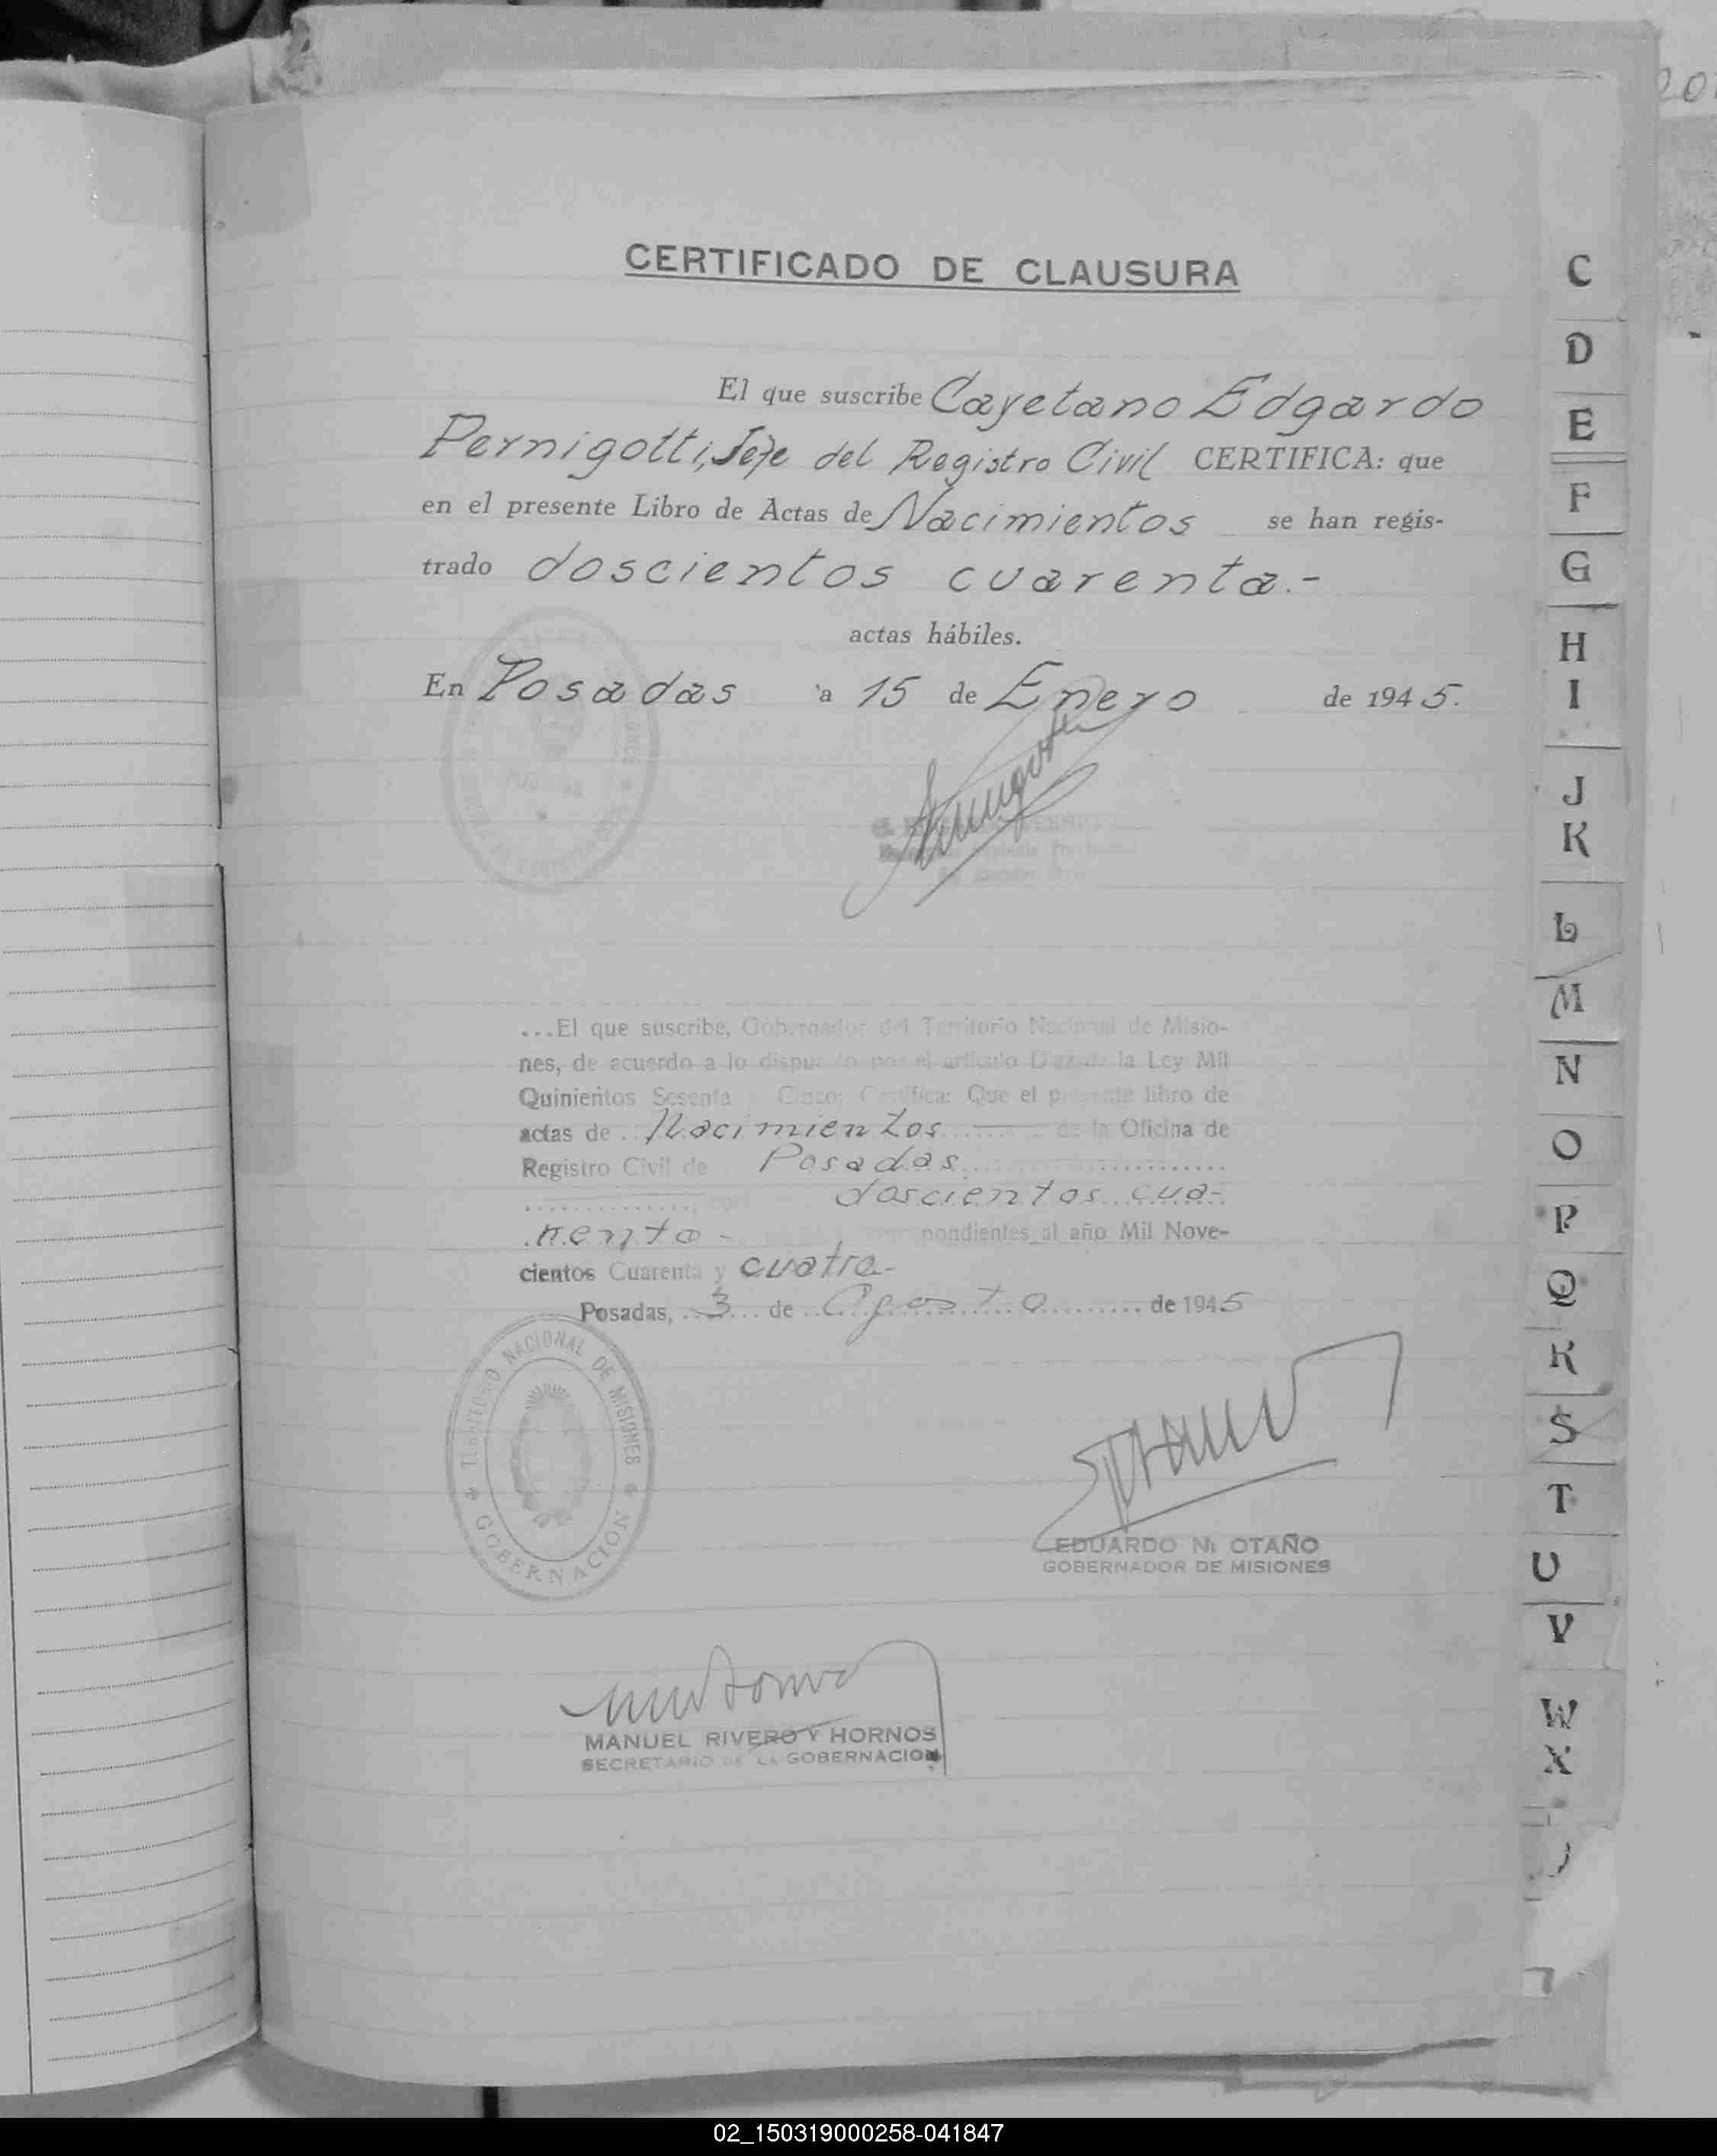 CERTIFICADO DE CLAUSURA
El que suscribe Cayetano Edgardo
Pernigotti, Jefe del Registro Civil CERTIFICA: que
en el presente Libro de Actas de Nacimientos se han regis-
trado doscientos cuarenta.-
actas hábiles.
En Posadas a 15 de Enero de 1945.
...El que suscribe, Gobernador del Territorio Nacional de Misio-
nes, de acuerdo a lo dispuesto por el artículo Diez de la Ley Mil
Quinientos Sesenta y Cinco; Certifica: Que el presente libro de
actas de Nacimientos de la Oficina de
Registro Civil de Posadas
doscientos cua-
renta - correspondientes al año Mil Nove-
cientos Cuarenta y cuatro-
Posadas, 3 de Agosto de 1945
TERRITORIO NACIONAL DE MISIONES
GOBERNACION
EDUARDO N. OTAÑO
GOBERNADOR DE MISIONES
MANUEL RIVERO Y HORNOS
SECRETARIO DE LA GOBERNACION
C
D
E
F
G
H
I
J
K
L
M
N
O
P
Q
R
S
T
U
V
W
X
02_150319000258-041847